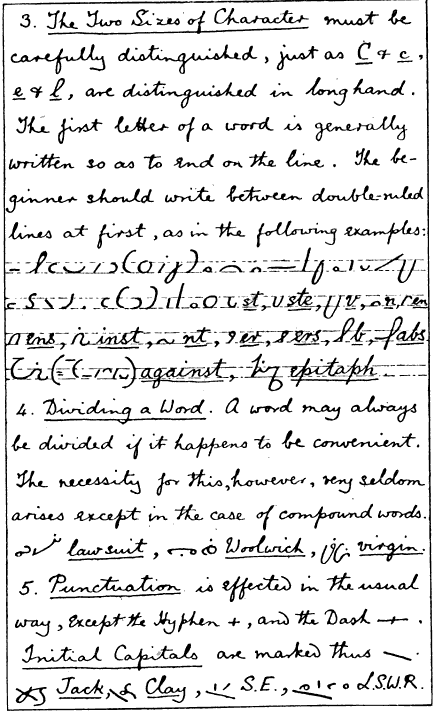 3. The Two Sizes of Character must be
carefully distinguished, just as C & c,
e & l, are distinguished in longhand.
The first letter of a word is generally
written so as to end on the line. The be-
ginner should write between double-ruled
lines at first, as in the following examples:
st, ste, v, n, en
ens, inst, nt, er, ers, b, fabs
against, epitaph.
4. Dividing a Word. A word may always
be divided if it happens to be convenient.
The necessity for this, however, very seldom
arises except in the case of compound words.
lawsuit, Woolwich, virgin.
5. Punctuation is effected in the usual
way, except the Hyphen +, and the Dash —+—.
Initial Capitals are marked thus —.
Jack, Clay, S.E., L.S.W.R.